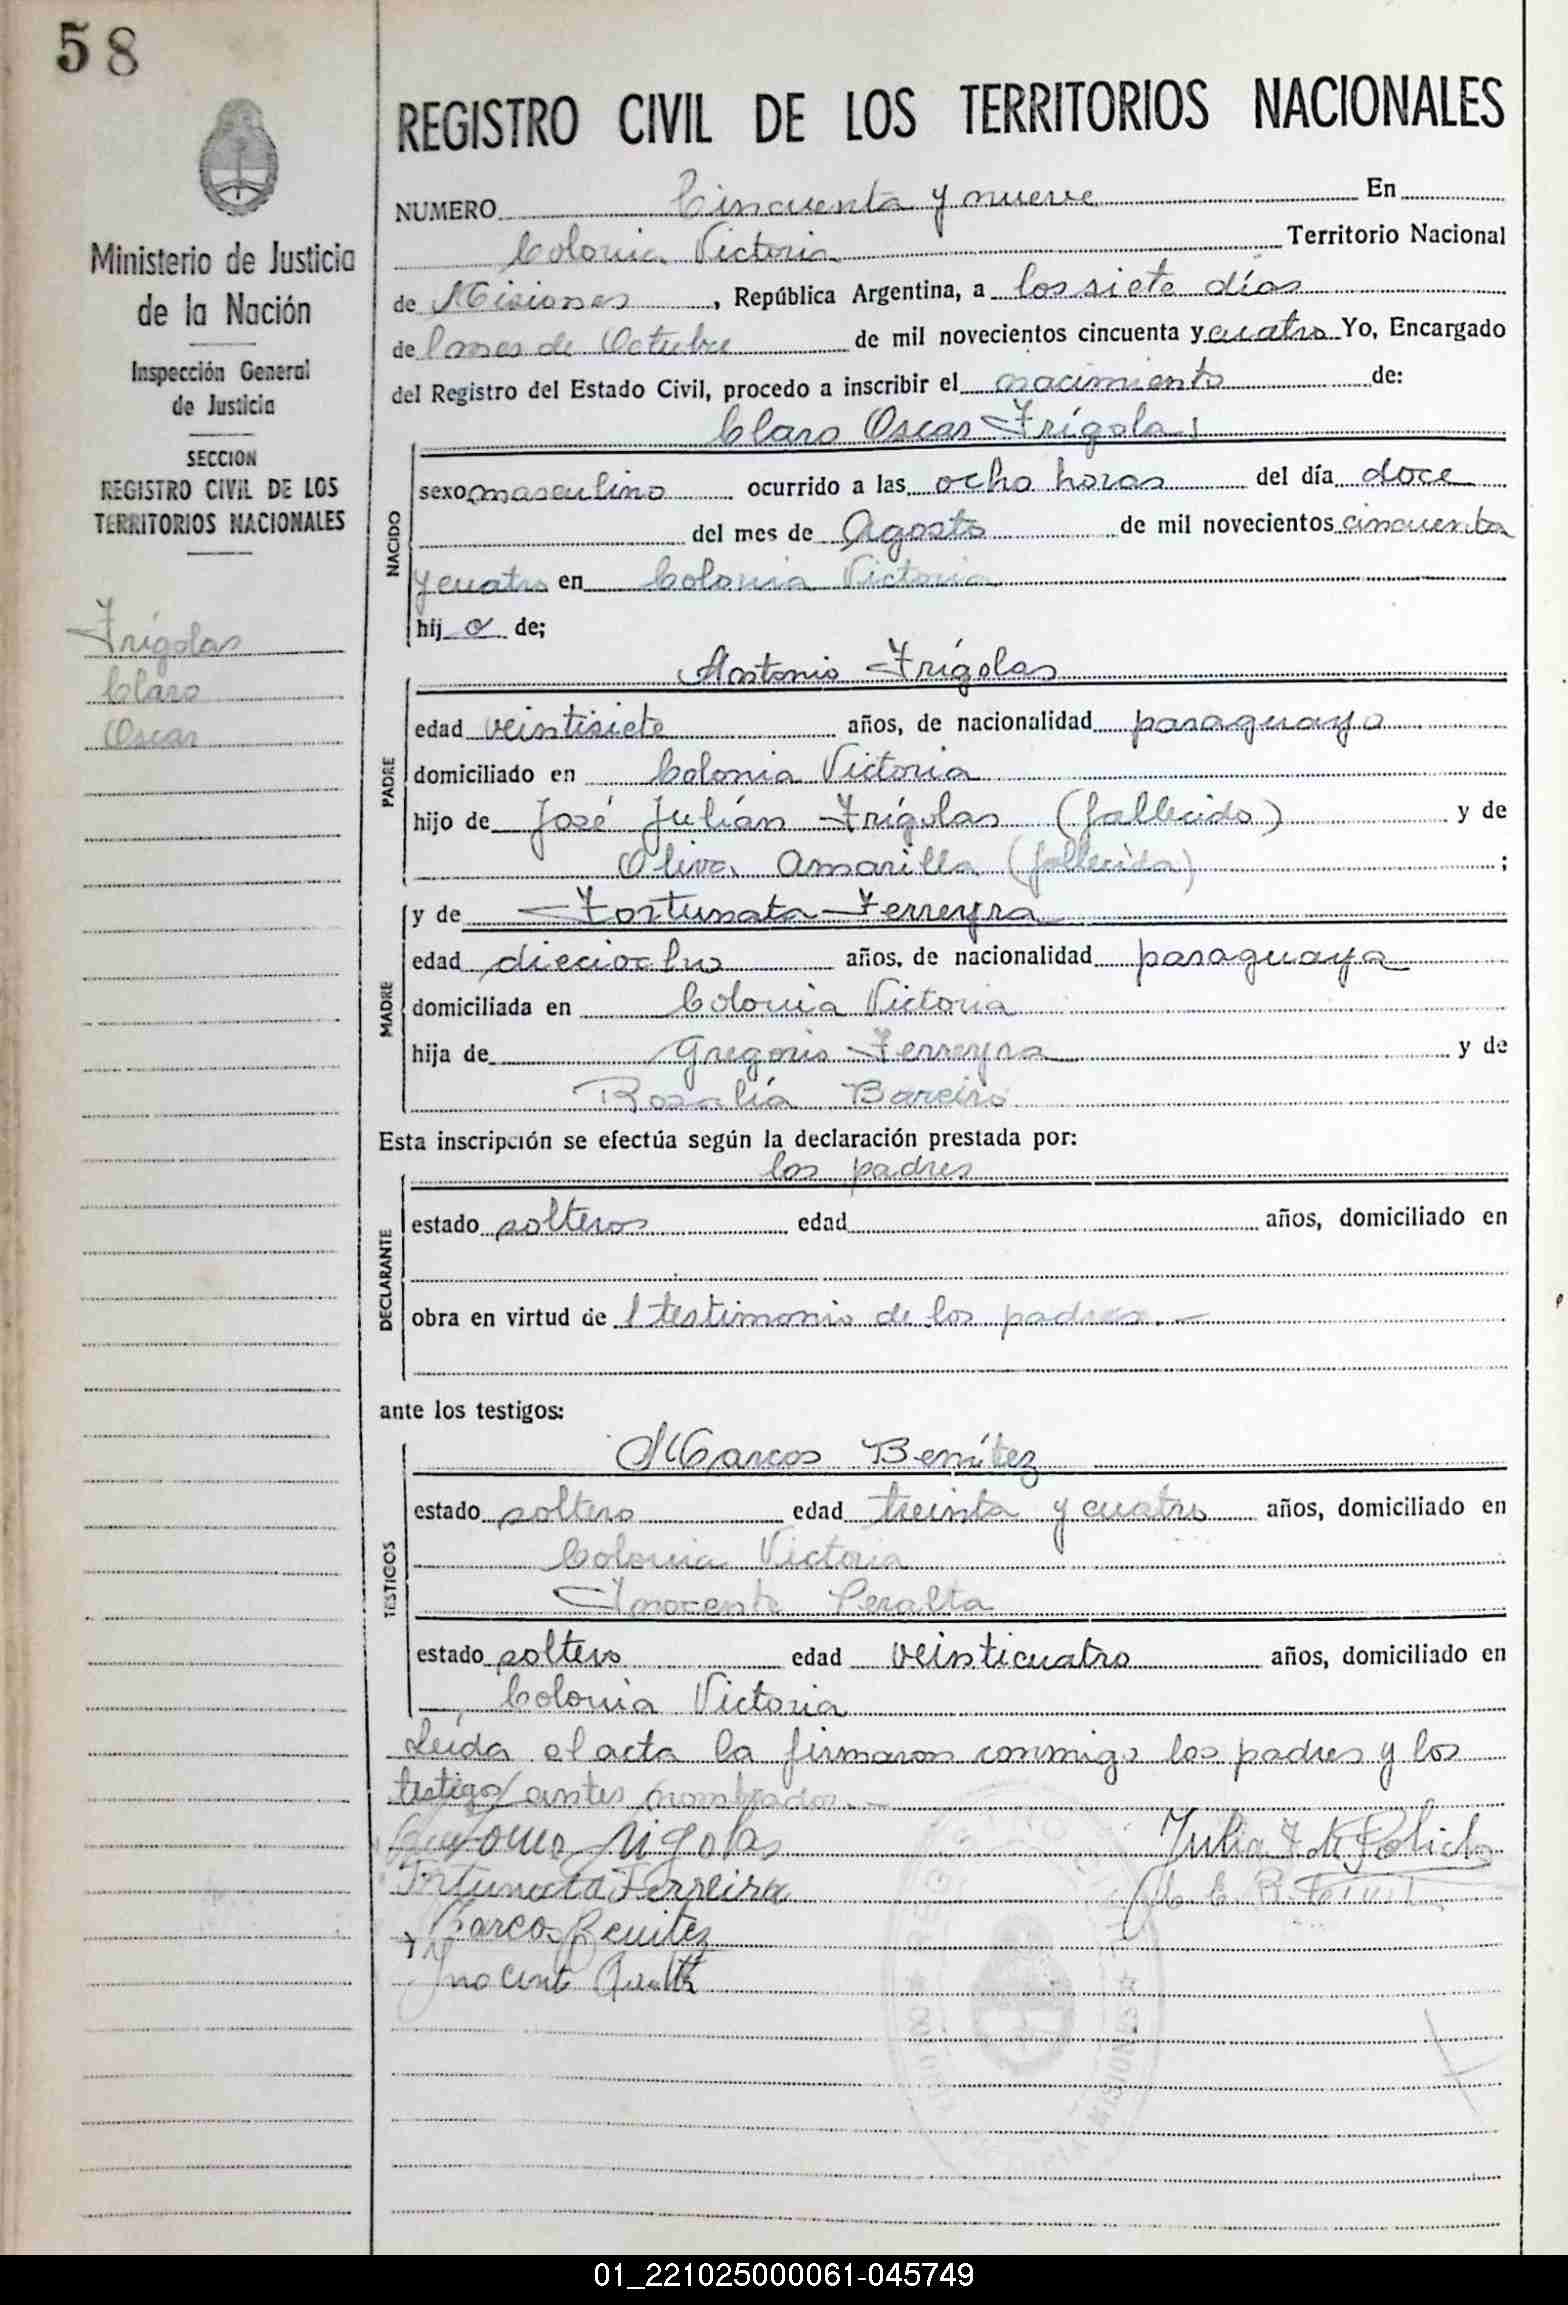 58
Ministerio de Justicia
de la Nación
Inspección General
de Justicia
SECCION
REGISTRO CIVIL DE LOS
TERRITORIOS NACIONALES
Frígolas
Claro
Oscar
REGISTRO CIVIL DE LOS TERRITORIOS NACIONALES
NUMERO Cincuenta y nueve En
Colonia Victoria Territorio Nacional
de Misiones, República Argentina, a los siete días
del mes de Octubre de mil novecientos cincuenta y cuatro Yo, Encargado
del Registro del Estado Civil, procedo a inscribir el nacimiento de:
Claro Oscar Frígolas
NACIDO
sexo masculino ocurrido a las ocho horas del día doce
del mes de Agosto de mil novecientos cincuenta
y cuatro en Colonia Victoria
hijo de;
Antonio Frígolas
PADRE
edad veintisiete años, de nacionalidad paraguayo
domiciliado en Colonia Victoria
hijo de José Julián Frígolas (fallecido) y de
Oliva Amarilla (fallecida) ;
MADRE
y de Fortunata Ferreyra
edad dieciocho años, de nacionalidad paraguaya
domiciliada en Colonia Victoria
hija de Gregorio Ferreyra y de
Rosalía Bareiro
Esta inscripción se efectúa según la declaración prestada por:
los padres
DECLARANTE
estado solteros edad años, domiciliado en
obra en virtud de l testimonio de los padres.-
ante los testigos:
TESTIGOS
Marcos Benítez
estado soltero edad treinta y cuatro años, domiciliado en
Colonia Victoria
Inocente Peralta
estado soltero edad veinticuatro años, domiciliado en
Colonia Victoria
Leída el acta la firmaron conmigo los padres y los
testigos antes nombrados.-
Antonio Frigolas
Fortunata Ferreira
Marcos Benitez
Inocente Peralta
Julia
MISIONES
01_221025000061-045749